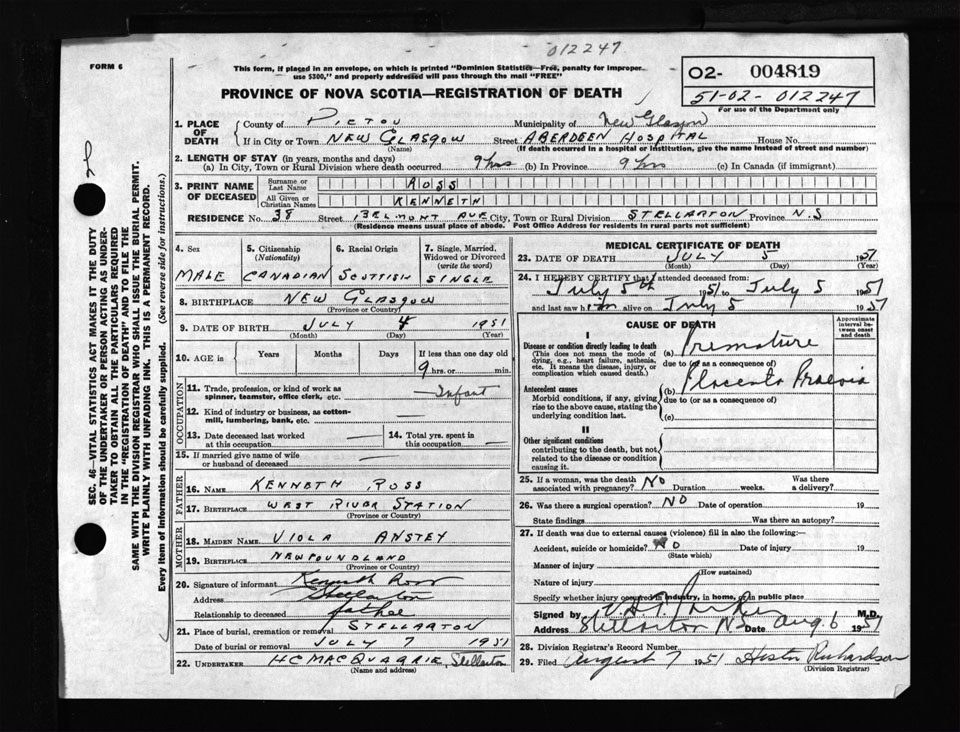 012247
FORM 6
This form, if placed in an envelope, on which is printed "Dominion Statistics—Free, penalty for improper
use $300," and properly addressed will pass through the mail "FREE"
O2- 004819
51-02- 012247
For use of the Department only
PROVINCE OF NOVA SCOTIA—REGISTRATION OF DEATH
1. PLACE OF DEATH County of PICTOU Municipality of New Glasgow
If in City or Town NEW GLASGOW Street ABERDEEN HOSPITAL House No.
(Name) (If death occurred in a hospital or institution, give the name instead of street and number)
2. LENGTH OF STAY (in years, months and days)
(a) In City, Town or Rural Division where death occurred 9 hrs (b) In Province 9 hrs (c) In Canada (if immigrant)
3. PRINT NAME OF DECEASED Surname or Last Name ROSS
All Given or Christian Names KENNETH
RESIDENCE No. 38 Street BELMONT AVE City, Town or Rural Division STELLARTON Province N.S
(Residence means usual place of abode. Post Office Address for residents in rural parts not sufficient)
4. Sex
MALE
5. Citizenship
(Nationality)
CANADIAN
6. Racial Origin
SCOTTISH
7. Single, Married,
Widowed or Divorced
(write the word)
SINGLE
8. BIRTHPLACE NEW GLASGOW
(Province or Country)
9. DATE OF BIRTH JULY 4 1951
(Month) (Day) (Year)
10. AGE in Years Months Days If less than one day old
9 hrs. or min.
OCCUPATION
11. Trade, profession, or kind of work as
spinner, teamster, office clerk, etc. Infant
12. Kind of industry or business, as cotton-
mill, lumbering, bank, etc.
13. Date deceased last worked
at this occupation
14. Total yrs. spent in
this occupation
15. If married give name of wife
or husband of deceased
FATHER
16. NAME KENNETH ROSS
17. BIRTHPLACE WEST RIVER STATION
(Province or Country)
MOTHER
18. MAIDEN NAME VIOLA ANSTEY
19. BIRTHPLACE NEWFOUNDLAND
(Province or Country)
20. Signature of informant Kenneth Ross
Address Stellarton
Relationship to deceased father
21. Place of burial, cremation or removal STELLARTON
Date of burial or removal JULY 7 1951
22. UNDERTAKER H C MACQUARRIE, Stellarton
(Name and address)
MEDICAL CERTIFICATE OF DEATH
23. DATE OF DEATH JULY 5 1951
(Month) (Day) (Year)
24. I HEREBY CERTIFY that I attended deceased from:
July 5th 1951 to July 5 1951
and last saw him alive on July 5 1951
CAUSE OF DEATH
Approximate
interval be-
tween onset
and death
I
Disease or condition directly leading to death
(This does not mean the mode of
dying, e.g., heart failure, asthenia,
etc. It means the disease, injury, or
complication which caused death.)
(a) Premature
due to (or as a consequence of)
Antecedent causes
Morbid conditions, if any, giving
rise to the above cause, stating the
underlying condition last.
(b) Placenta Praevia
due to (or as a consequence of)
(c)
II
Other significant conditions
contributing to the death, but not
related to the disease or condition
causing it.
25. If a woman, was the death
associated with pregnancy? NO Duration weeks. Was there
a delivery?
26. Was there a surgical operation? NO Date of operation 19
State findings Was there an autopsy?
27. If death was due to external causes (violence) fill in also the following:—
Accident, suicide or homicide? NO Date of injury 19
(State which)
Manner of injury
(How sustained)
Nature of injury
Specify whether injury occurred in industry, in home, or in public place
Signed by Parker M.D.
Address Stellarton NS Date Aug. 6 1951
28. Division Registrar's Record Number
29. Filed August 7 1951 Hester Richardson
(Division Registrar)
SEC. 46—VITAL STATISTICS ACT MAKES IT THE DUTY
OF THE UNDERTAKER OR PERSON ACTING AS UNDER-
TAKER TO OBTAIN ALL THE PARTICULARS REQUIRED
IN THE "REGISTRATION OF DEATH" AND TO FILE THE
SAME WITH THE DIVISION REGISTRAR WHO SHALL ISSUE THE BURIAL PERMIT.
WRITE PLAINLY WITH UNFADING INK. THIS IS A PERMANENT RECORD.
Every item of information should be carefully supplied. (See reverse side for instructions.)